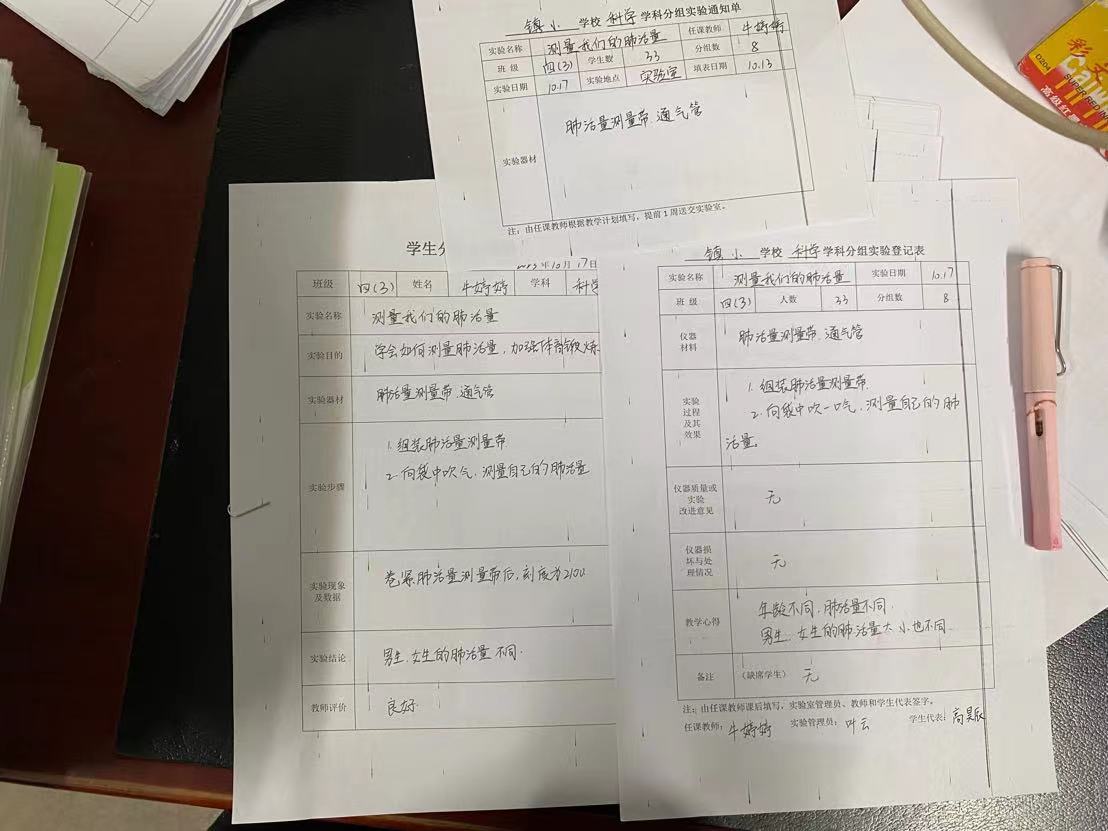 镇小 学校 科学 学科分组实验通知单
实验名称 测量我们的肺活量 任课教师 牛婷婷
班 级 四(3) 学生数 33 分组数 8
实验日期 10.17 实验地点 实验室 填表日期 10.13
实验器材 肺活量测量带.通气管
注：由任课教师根据教学计划填写，提前1周送交实验室。
学生分
年10月17日
班级 四(3) 姓名 牛婷婷 学科 科学
实验名称 测量我们的肺活量
实验目的 学会如何测量肺活量，加强体育锻炼
实验器材 肺活量测量带.通气管
实验步骤
1.组装肺活量测量带
2.向袋中吹气.测量自己的肺活量
实验现象
及数据
卷紧肺活量测量带后，刻度为2100
实验结论 男生.女生的肺活量不同.
教师评价 良好
镇小 学校 科学 学科分组实验登记表
实验名称 测量我们的肺活量 实验日期 10.17
班 级 四(3) 人数 33 分组数 8
仪器
材料
肺活量测量带.通气管
实验
过程
及其
效果
1.组装肺活量测量带.
2.向袋中吹一口气.测量自己的肺
活量。
仪器质量或
实验
改进意见
无
仪器损
坏与处
理情况
无
教学心得
年龄不同.肺活量不同.
男生.女生的肺活量大小也不同.
备注 （缺席学生） 无
注：由任课教师课后填写，实验室管理员、教师和学生代表签字。
任课教师：牛婷婷 实验管理员：叶云 学生代表：高昊辰
彩文
SUPER RED IN
高级红墨
D204